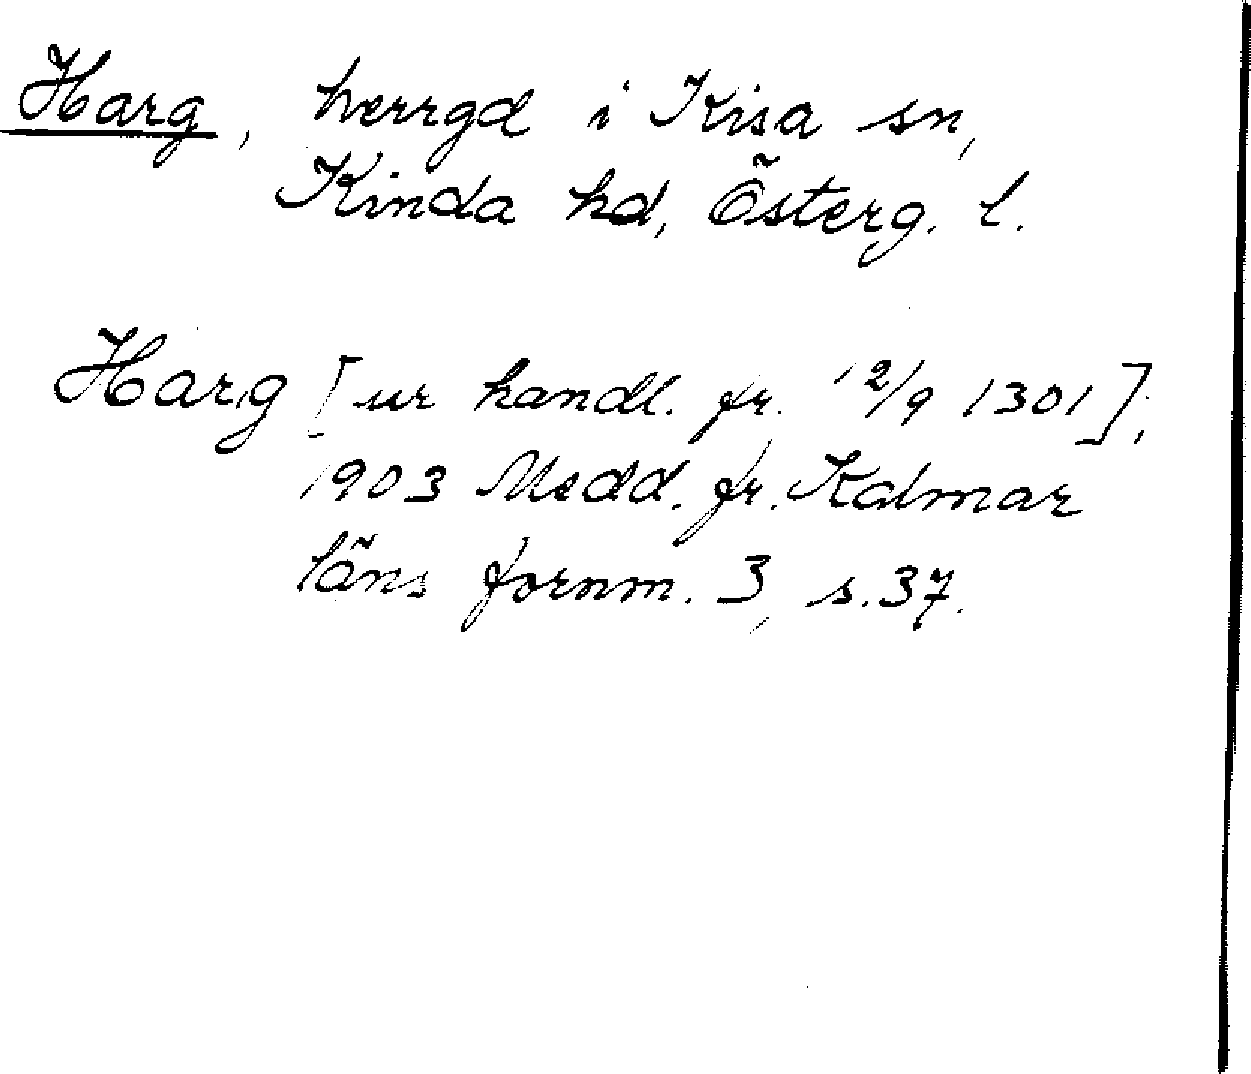 Harg, herrgd i Kisa sn,
Kinda hd, Österg. l.
Harg [ur handl. fr. 12/9 1301];
1903 Medd. fr. Kalmar
läns fornm. 3, s. 37.